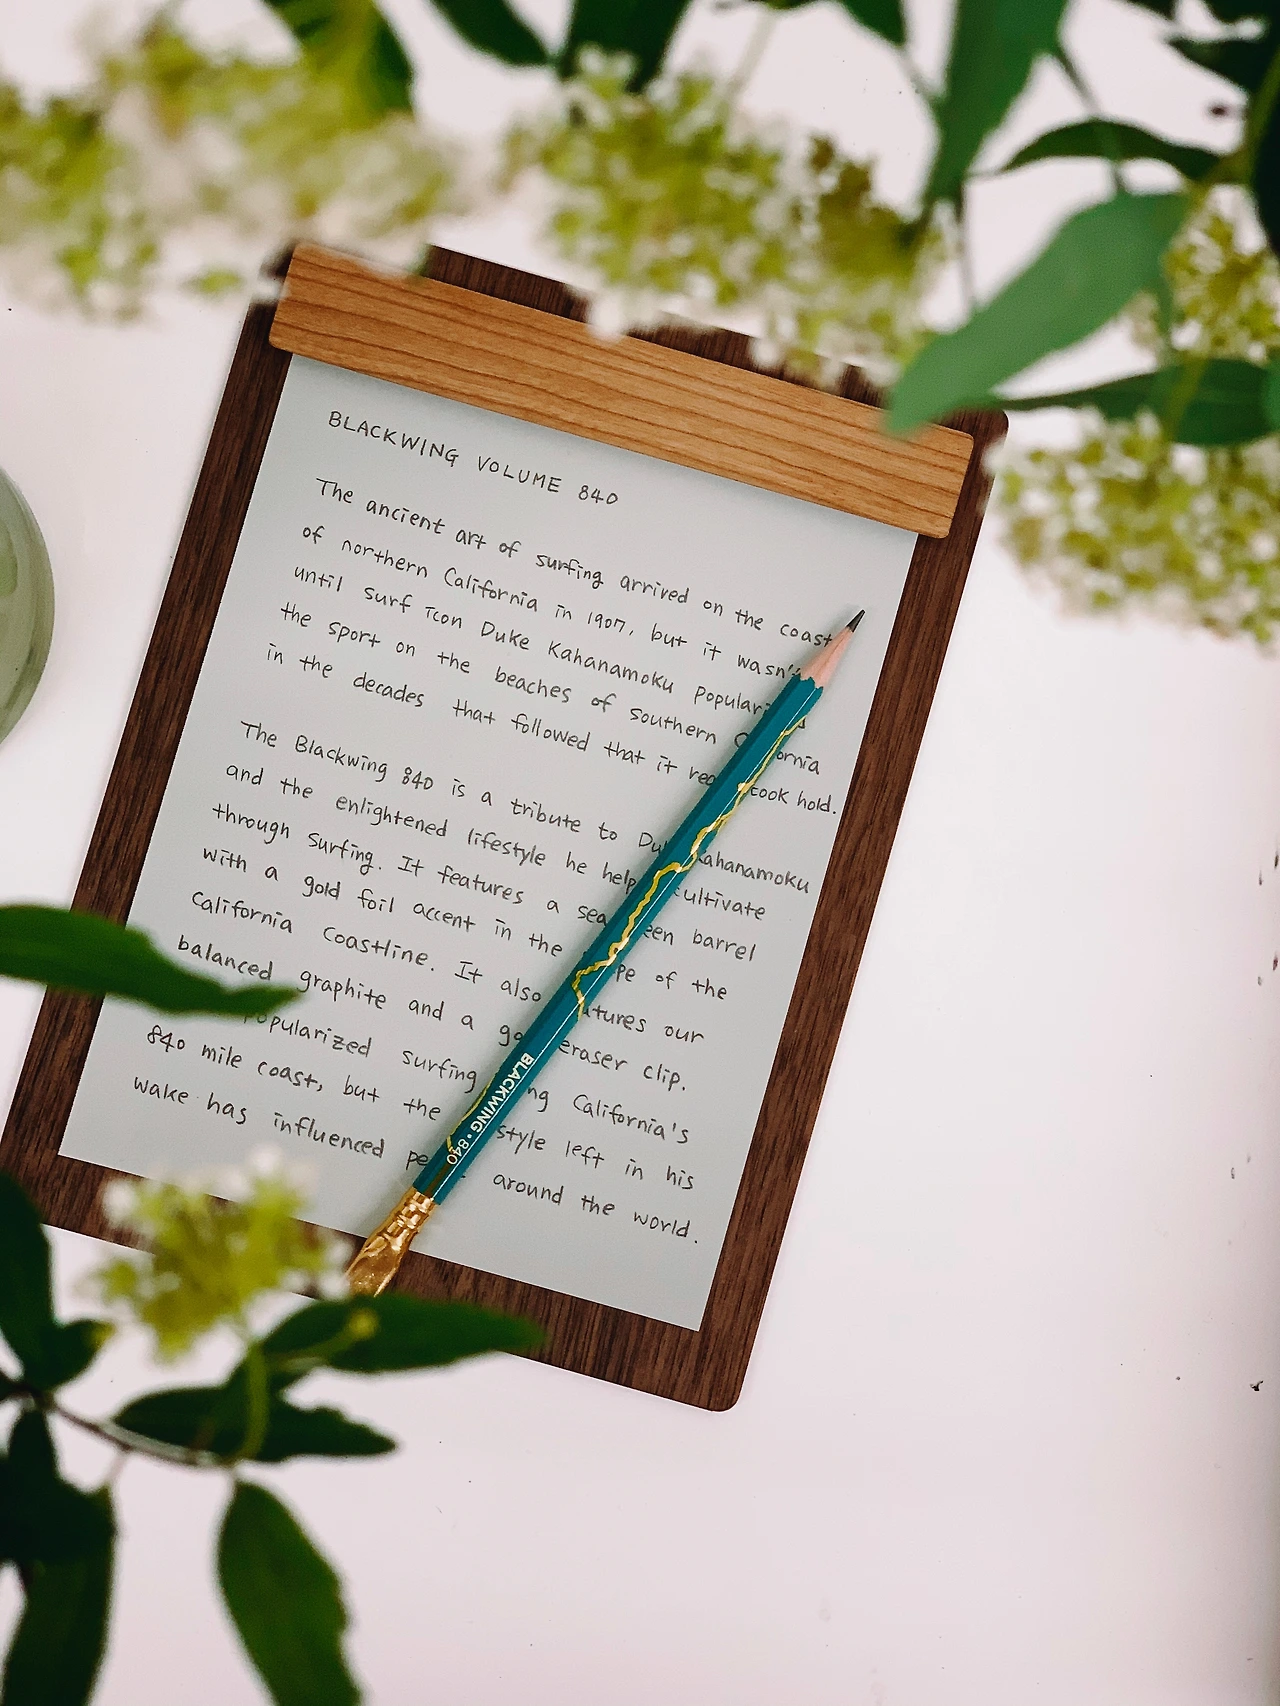 BLACKWING VOLUME 840
The ancient art of surfing arrived on the coast
of northern California in 1907, but it wasn't
until surf icon Duke Kahanamoku
the sport on the beaches of southern
in the decades that followed that it took hold.
The Blackwing 840 is a tribute to Kahanamoku
and the enlightened lifestyle he cultivate
through surfing. It features a barrel
with a gold foil accent in the of the
California Coastline. It also our
balanced graphite and a eraser clip.
popularized surfing California's
840 mile coast, but the left in his
wake has influenced around the world.
BLACKWING • 840